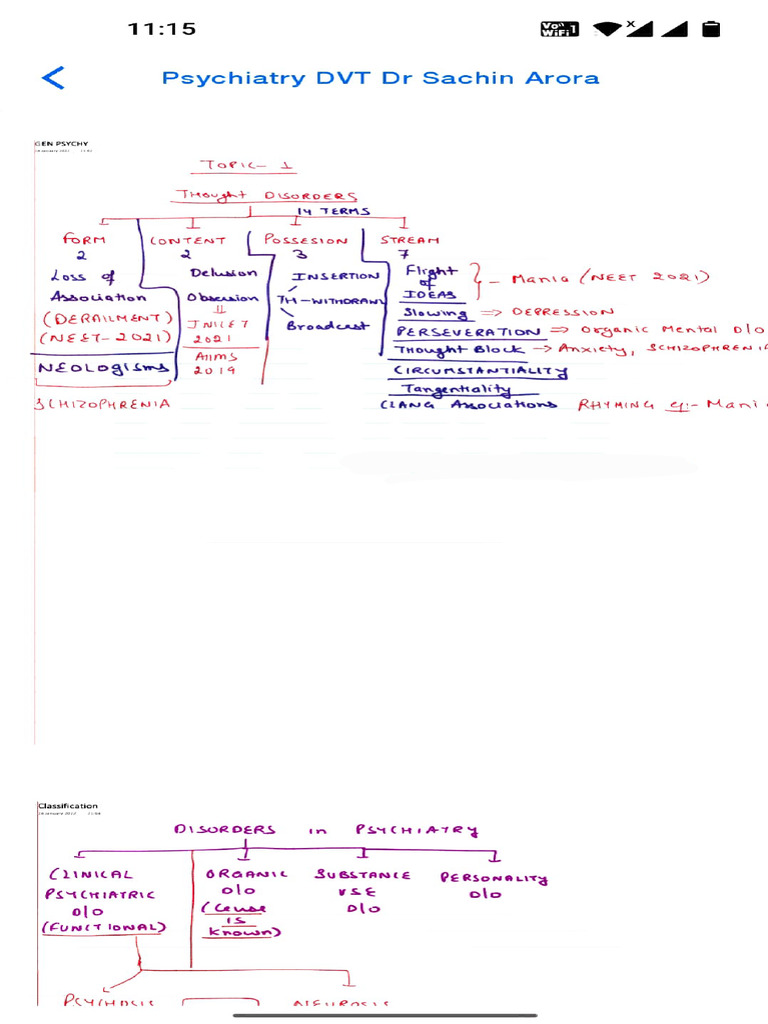 11:15
Vo WiFi 1
Psychiatry DVT Dr Sachin Arora
GEN PSYCHY
TOPIC- 1
Thought DISORDERS
14 TERMS
FORM
2
Loss of
Association
(DERAILMENT)
(NEET-2021)
NEOLOGISMS
SCHIZOPHRENIA
CONTENT
2
Delusion
Obsession
⇓
INICET
2021
AIIMS
2019
POSSESION
3
INSERTION
TH-WITHDRAW
Broadcast
STREAM
7
Flight
of
IDEAS
- Mania (NEET 2021)
Slowing ⇒ DEPRESSION
PERSEVERATION ⇒ Organic Mental D/O
Thought Block → Anxiety, SCHIZOPHRENIA
CIRCUMSTANTIALITY
Tangentiality
CLANG Associations RHYMING eg:- Mani
Classification
DISORDERS in PSYCHIATRY
CLINICAL
PSYCHIATRIC
D/O
(FUNCTIONAL)
ORGANIC
D/O
(Cause
is
known)
SUBSTANCE
USE
D/O
PERSONALITY
D/O
PSYCHOSIS
NEUROSIS